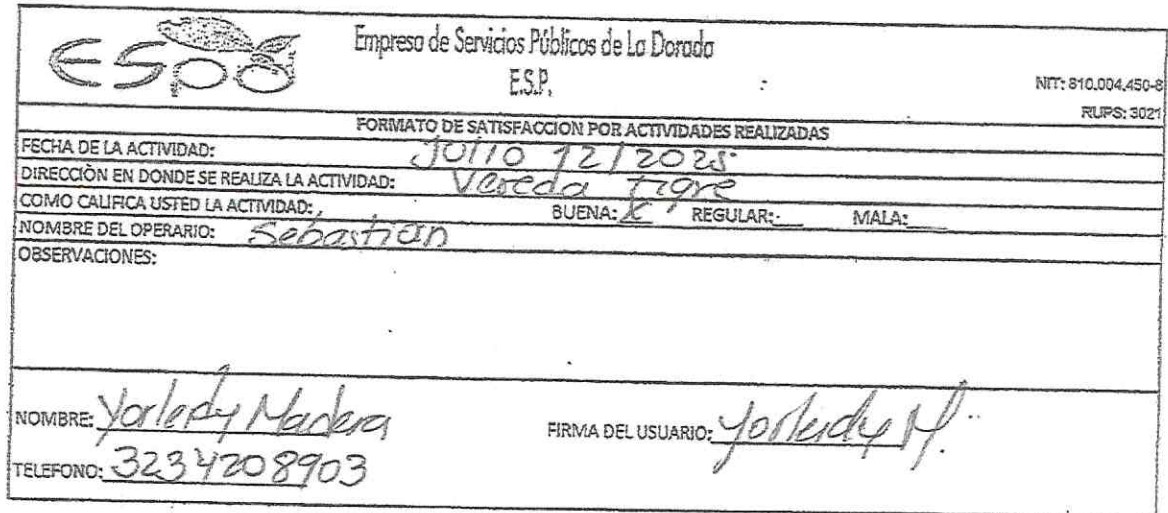 ESPD
Empresa de Servicios Públicos de La Dorada
E.S.P.
NIT: 810.004.450-8
RUPS: 3021
FORMATO DE SATISFACCION POR ACTIVIDADES REALIZADAS
FECHA DE LA ACTIVIDAD: Julio 12/2025
DIRECCIÒN EN DONDE SE REALIZA LA ACTIVIDAD: Vereda tigre
COMO CALIFICA USTED LA ACTIVIDAD: BUENA: X REGULAR: MALA:
NOMBRE DEL OPERARIO: Sebastian
OBSERVACIONES:
NOMBRE: Yorleidy Madera FIRMA DEL USUARIO: Yorleidy M.
TELEFONO: 3234208903